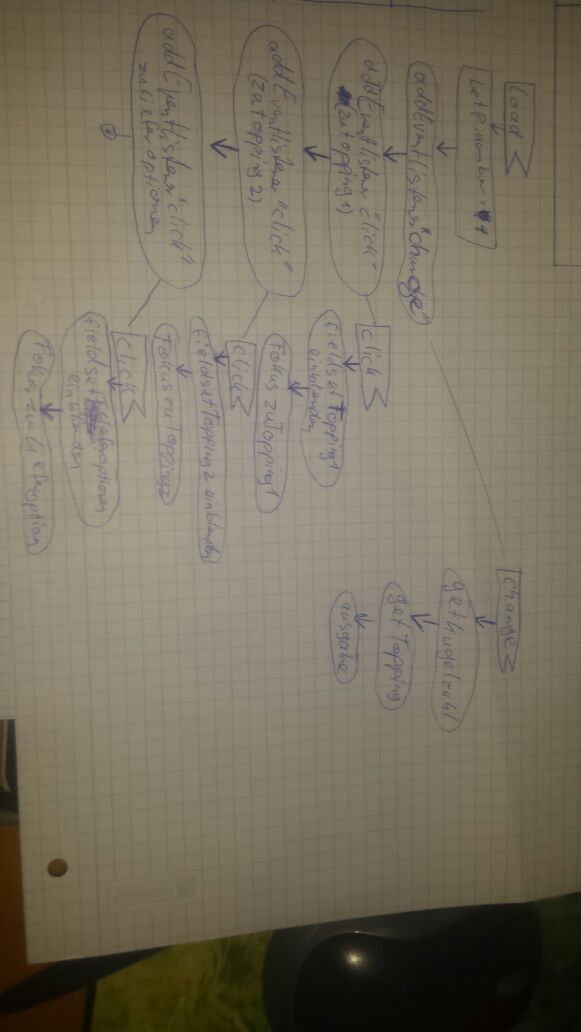 Load
let p.number = 1
addEventListener "change"
addEventlisten "click"
(zu topping 1)
addEventlistener "click"
(zu topping 2)
addEventlisten "click"
zu lieferoptionen
click
fieldset Topping 1
einblenden
Fokus zu Topping 1
click
fieldset Topping 2 einblenden
Fokus zu Topping 2
click
fieldset lieferoptionen
einblenden
Fokus zu lieferoption
change
get kugelzahl
get Topping
ausgabe